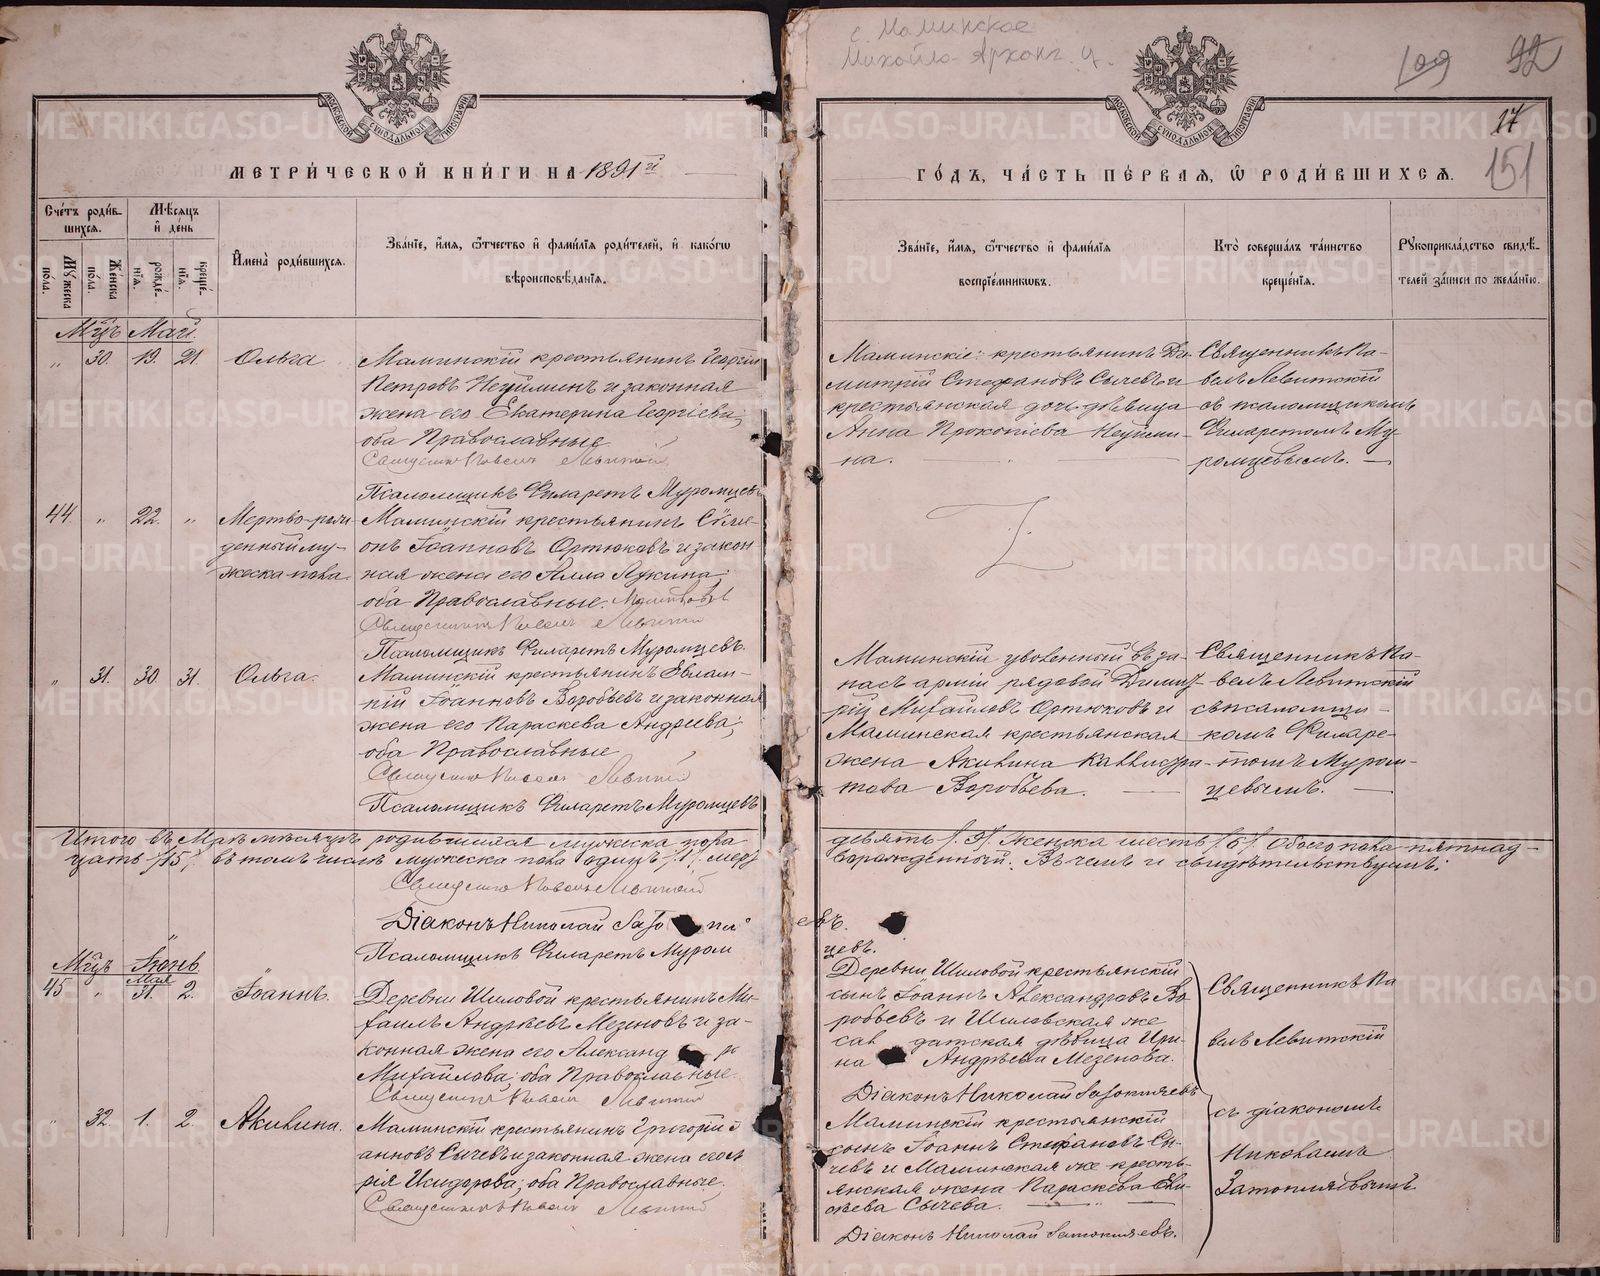 с. Маминское
Михайло-Арханг. ц.
109
92
МОСКОВСКОЙ СѴНОДАЛЬНОЙ ТИПОГРАФІИ
МОСКОВСКОЙ СѴНОДАЛЬНОЙ ТИПОГРАФІИ
17
151
МЕТРИ́ЧЕСКОЙ КНИ́ГИ НА 1891й
ГО́ДЪ, ЧА́СТЬ ПЕ́РВАЯ, Ѡ РОДИ́ВШИХСЯ.
Сче́тъ роди́вшихся.
Мѣсяцъ и де́нь
Мꙋжеска по́ла.
Же́нска по́ла.
рожде́нїѧ.
креще́нїѧ.
Имена̀ роди́вшихсѧ.
Зва́нїе, и́мѧ, ѻ҆́тчество и҆ фамилїѧ роди́телей, и҆ како́гѡ
вѣроисповѣ́данїѧ.
Зва́нїе, и́мѧ, ѻ҆́тчество и҆ фами́лїѧ
воспрїе́мниковъ.
Кто̀ соверша́лъ та́инство
креще́нїѧ.
Рꙋкоприкла́дство свидѣ́-
телей за́писи по жела́нїю.
Мѣцъ Май.
„ 30. 19. 21. Ольга
Маминскій крестьянинъ Георгій
Петровъ Неуйминъ и законная
жена его Екатерина Георгіева;
оба Православные
Священникъ Павелъ Левитскій
Псаломщикъ Филаретъ Муромцевъ
Маминскіе: крестьянинъ Ди-
митрій Стефановъ Сычевъ и
крестьянская дочь девица
Анна Прокопіева Неуйми-
на.
Священникъ Па-
велъ Левитскій
съ псаломщикомъ
Филаретомъ Му-
ромцевымъ.
44. „ 22. „ Мертво-рож-
денный му-
жеска пола.
Маминскій крестьянинъ Симе-
онъ Іоанновъ Ортюковъ и закон
ная жена его Алла Лукина;
оба Православные.
Священникъ Павелъ Левитскій
Псаломщикъ Филаретъ Муромцевъ.
„ 31. 30. 31. Ольга.
Маминскій крестьянинъ Евлам-
пій Іоанновъ Воробьевъ и законная
жена его Параскева Андреева;
оба Православные
Священникъ Павелъ Левитскій
Псаломщикъ Филаретъ Муромцевъ
Маминскій уволенный въ за-
пасъ арміи рядовой Димит-
рій Михайловъ Ортюковъ и
Маминская крестьянская
жена Акилина Каллистра-
това Воробьева.
Священникъ Па-
велъ Левитскій
съ псаломщи-
комъ Филаре-
томъ Муром-
цевымъ.
Итого въ Маѣ мѣсяцѣ родившихся мужеска пола
девять /9/ женска шесть /6/ обоего пола пятнад-
цать /15/, въ томъ числѣ мужеска пола одинъ /1/ мер
ворожденный. Въ чемъ и свидѣтельствуемъ:
Священникъ Павелъ Левитскій
Діаконъ Николай
Псаломщикъ Филаретъ Муром
цевъ.
Мѣцъ Іюнь
45 „ Мая 31. 2. Іоаннъ.
Деревни Шиловой крестьянинъ Ми-
хаилъ Андреевъ Мезеновъ и за-
конная жена его Александ ра
Михайлова; оба Православные.
Священникъ Павелъ Левитскій
Деревни Шиловой крестьянскій
сынъ Іоаннъ Александровъ Во-
робьевъ и Шиловская же
сол датская дѣвица Ири-
на Андреева Мезенова.
Діаконъ Николай Затопляевъ
Священникъ Па
велъ Левитскій
съ діакономъ
Николаемъ
Затопляевымъ
„ 32. 1. 2. Акилина.
Маминскій крестьянинъ Григорій І
анновъ Сычевъ и законная жена его М
рія Исидорова; оба Православные.
Священникъ Павелъ Левитскій
Маминскій крестьянскій
сынъ Іоаннъ Стефановъ Сы-
чевъ и Маминская же кресть-
янская жена Параскева
Сычева.
Діаконъ Николай Затопляевъ.
METRIKI.GASO-URAL.RU